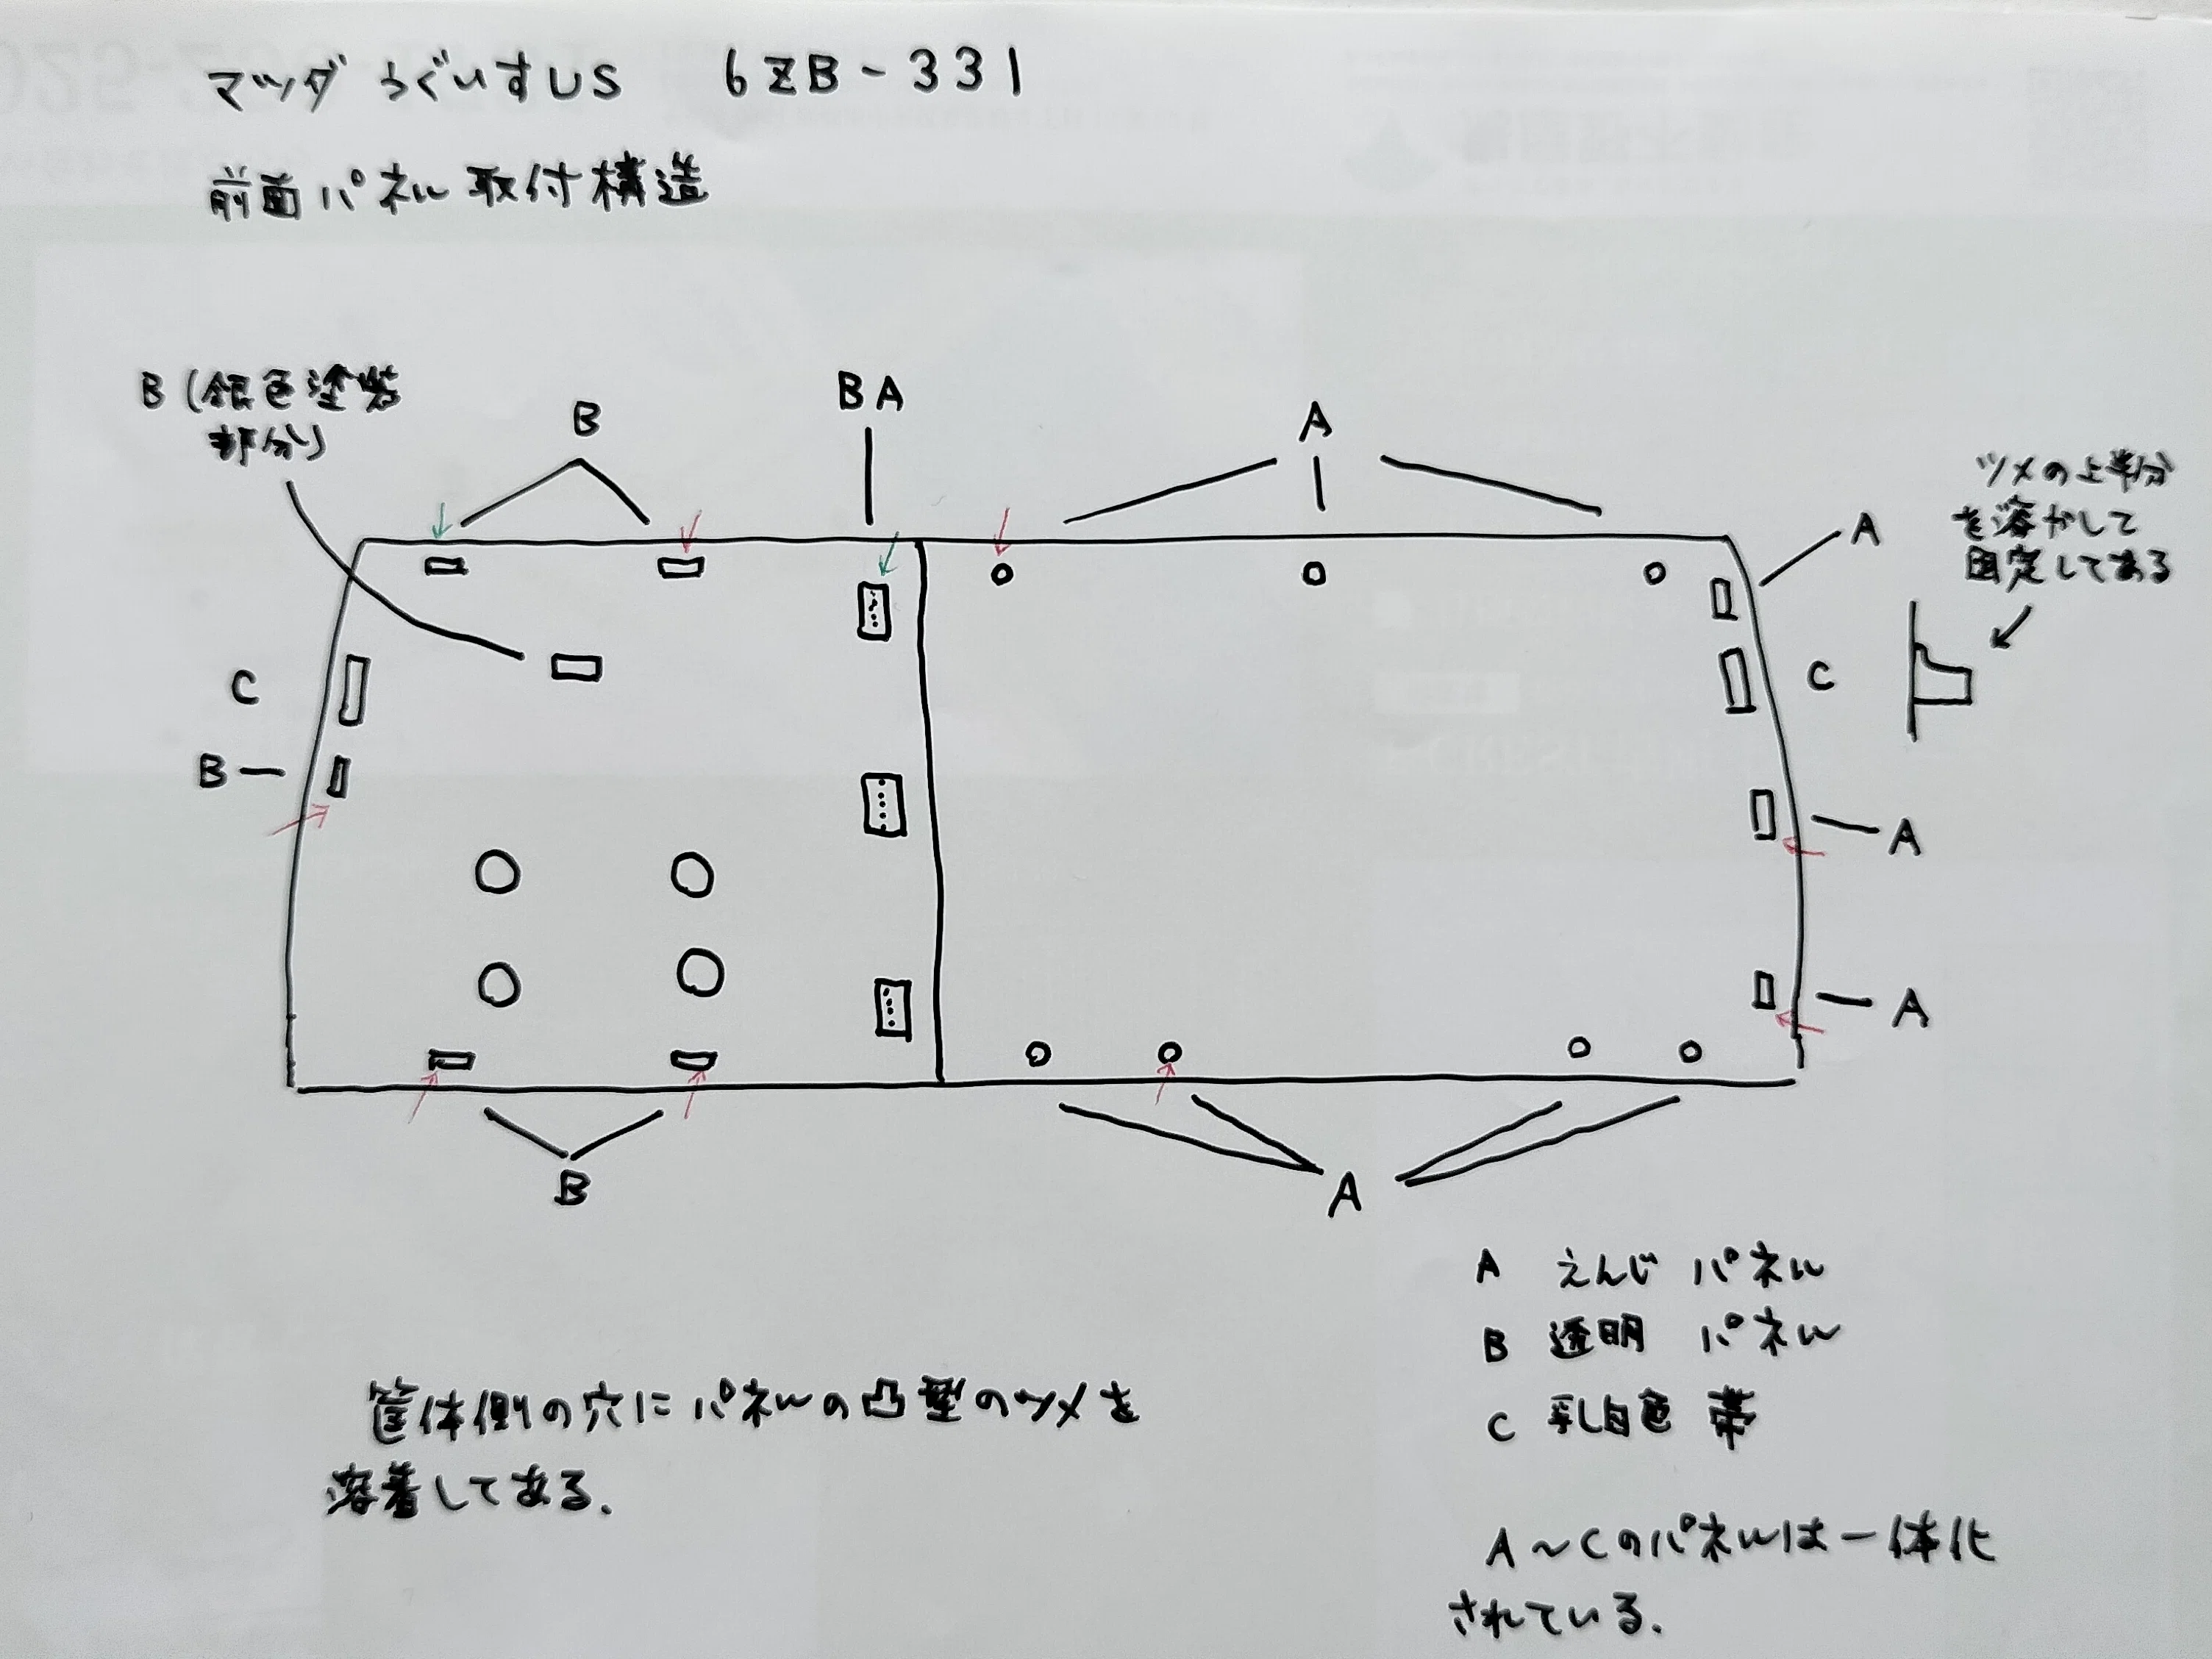 マツダ うぐいすUS 6ZB-331
前面パネル取付構造
B(銀色塗装
部分)
B
BA
A
ツメの上半分
を溶かして
固定してある
A
C
C
B
A
A
B
A
A えんじ パネル
B 透明 パネル
C 乳白色 帯
筐体側の穴にパネルの凸型のツメを
溶着してある.
A~Cのパネルは一体化
されている.